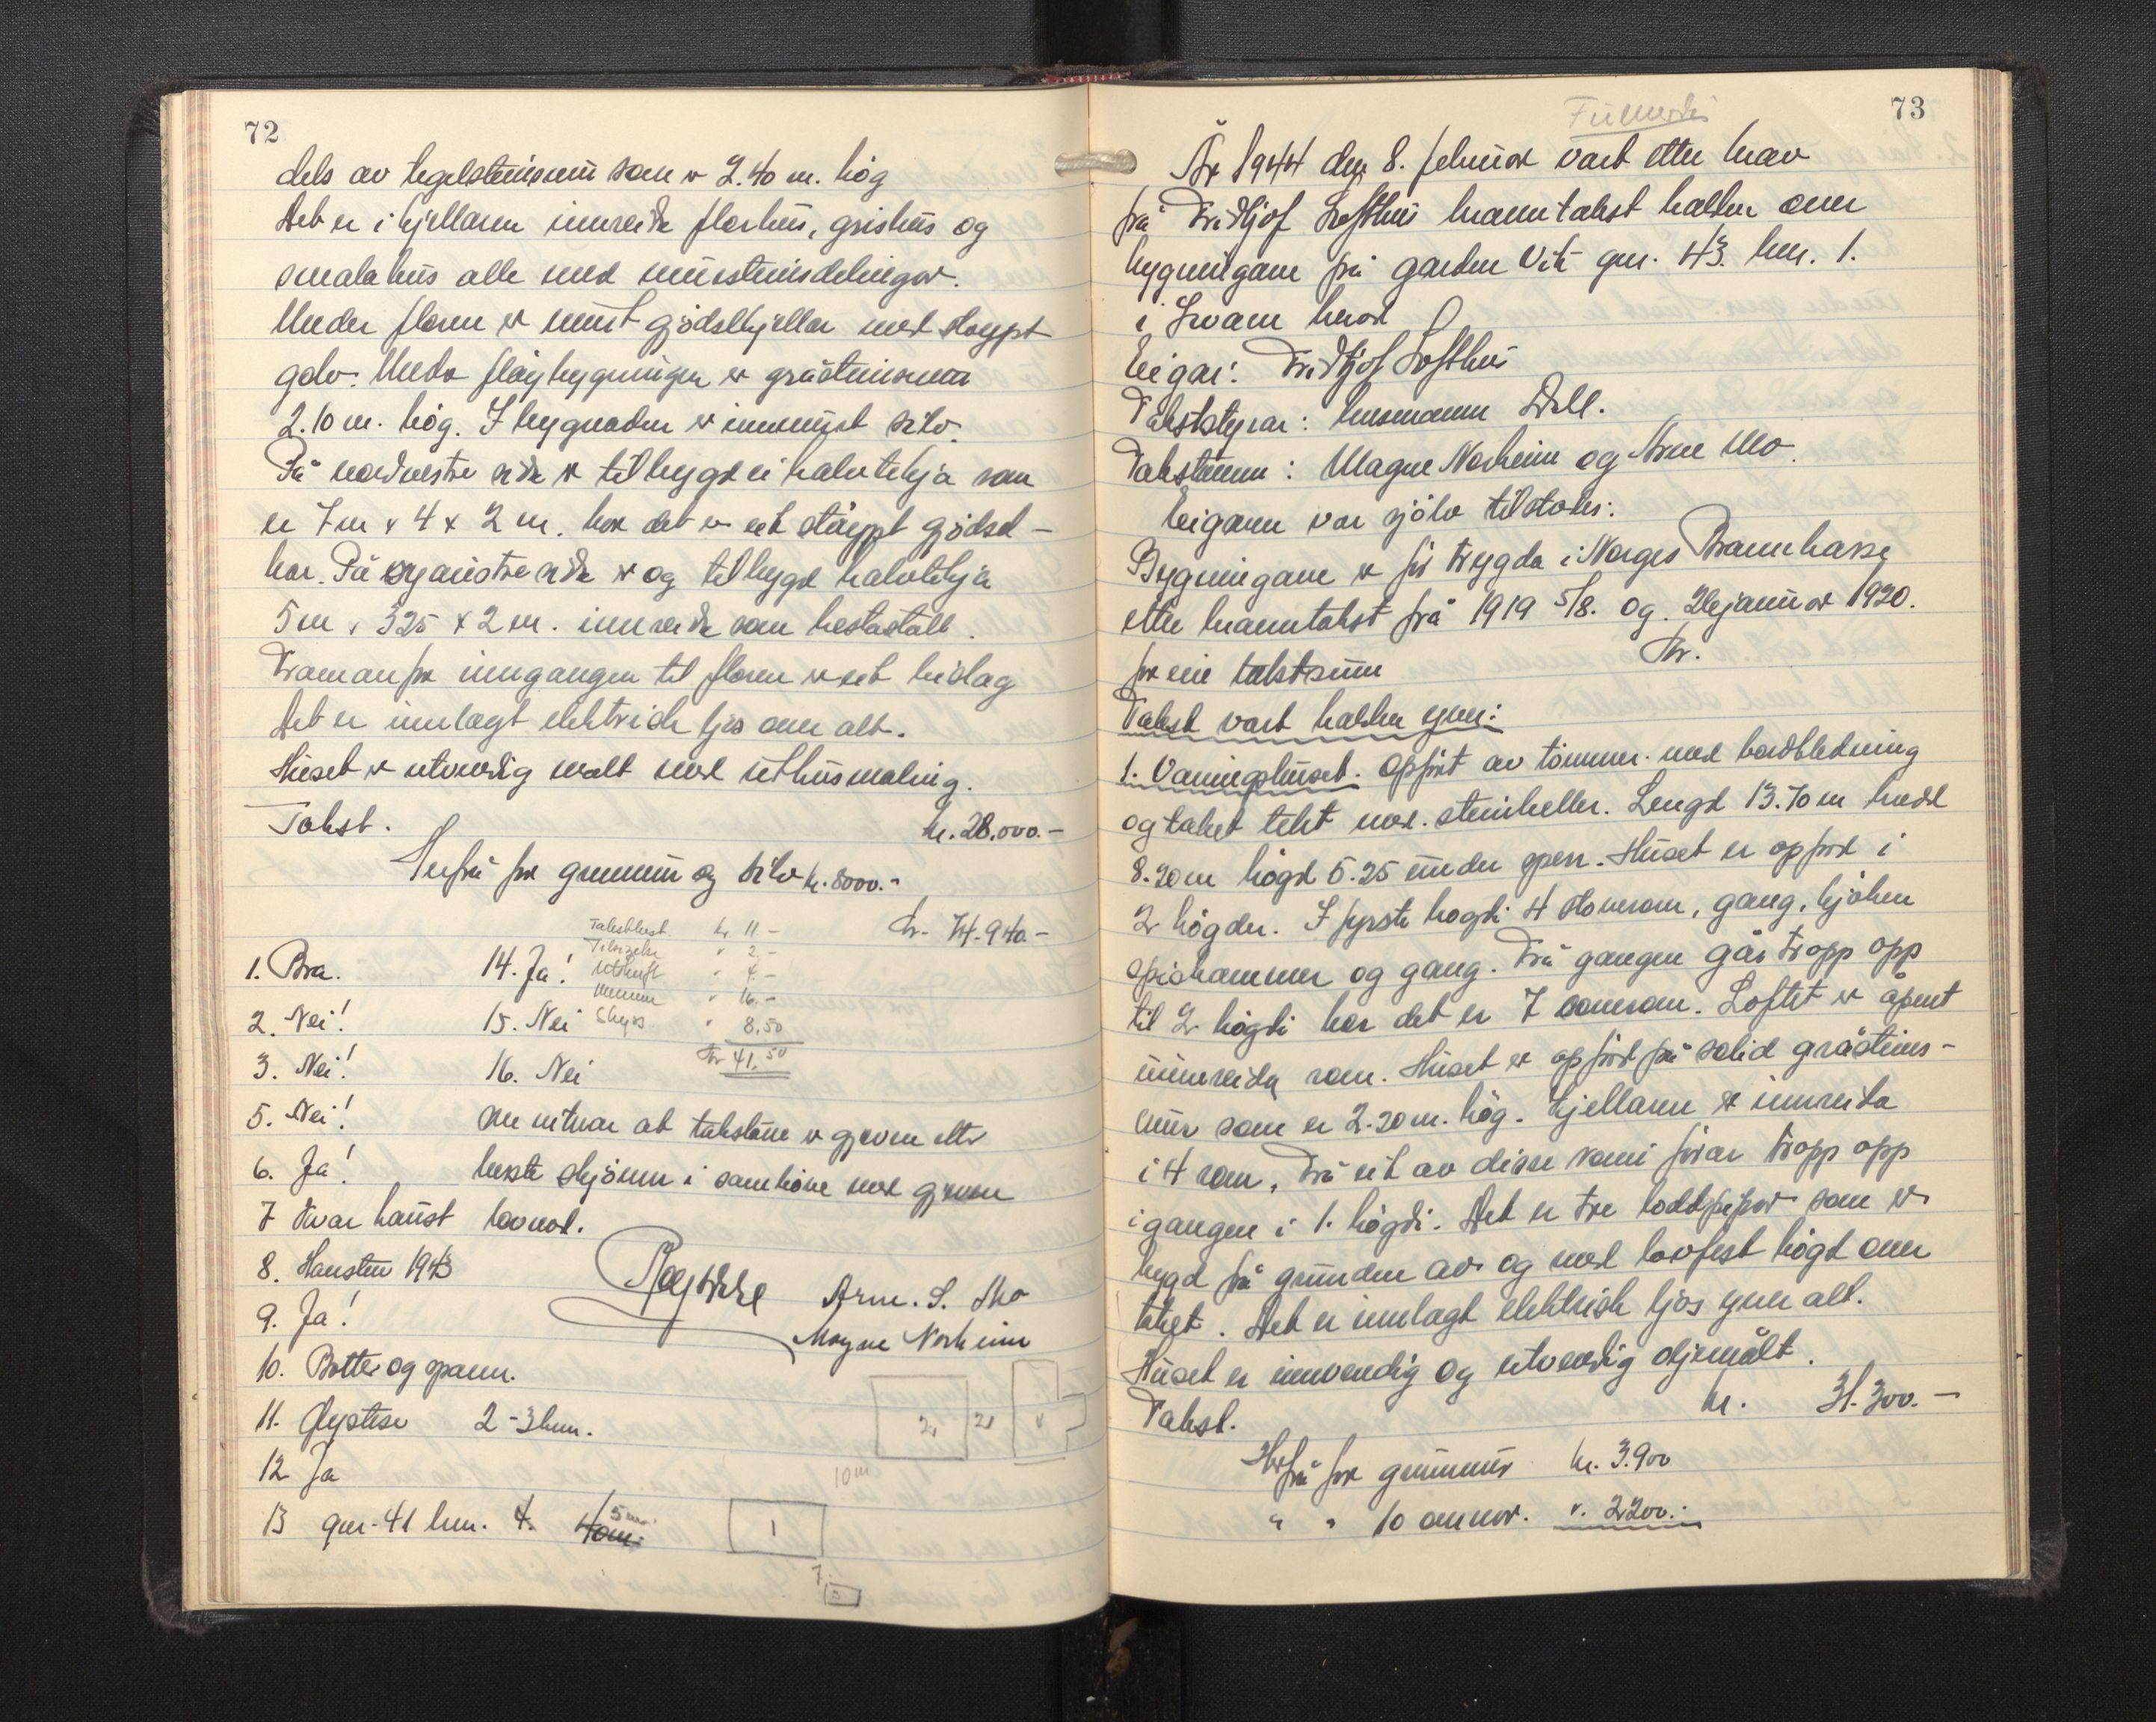 72
dels av tegelsteinsmur som er 2.40 m. høg
Det er i kjellaren innreide florhus, grishus og
smalahus alle med mursteinsdelingar.
Under floren er murt gjödselkjellar med støypt
golv. Under fløybygningen er gråsteinsmur
2.10 m. høg. I bygnaden er innmurt silo.
På nordvestre side er tilbygd ei halvtekja som
er 7 m x 4 x 2 m. kor det er eit støypt gjödsel-
kar. På søraustre side er og tilbygd halvtekja
5 m x 325 x 2 m. innreide som hestastall.
Framanfor inngangen til floren er eit bislag
Det er innlagt elektrisk ljos over alt.
Huset er utvendig malt med uthusmaling.
Takst. kr. 28.000.-
Herfrå for grunnmur og silo kr. 8000.-
kr. 74.940.-
Takstkost kr 11 -
" 2,-
Utskrift " 4.-
" 16.-
Skyss " 8.50
Kr 41.50
1. Bra. 14. Ja!
2. Nei! 15. Nei
3. Nei! 16. Nei
5. Nei!
6. Ja!
7 Kvar haust
8. Hausten 1943
9. Ja!
10. Bøtter og spann.
11. Øystese 2-3 km.
12 Ja
13 gnr. 41 bnr. 4. 5 m.
Me vitnar at takstane er gjeven etter
beste skjönn i samhöve med gjeven
lovnad.
Arne. S. Mo
Magne Norheim
2, 21 1
10 m
1
7.
3
73
År 1944 den 8. februar vart etter krav
frå Fridtjof Lofthus branntakst halden over
bygningane på garden Vik gnr. 43. bnr. 1.
i Kvam herad
Eigar: Fridtjof Lofthus
Takststyrar: lensmann
Takstmenn: Magne Norheim og Arne Mo.
Eigaren var sjölv tilstades.
Bygningane er för trygda i Norges Brannkasse
etter branntakst frå 1919 5/8. og januar 1920.
for ein takstsum Kr.
Takst vart halden yver:
1. Våningshuset. Oppført av tömmer med bordkledning
og taket tekt med steinheller. Lengd 13.70 m bredd
8.20 m høgd 5.25 under sperr. Huset er oppførd i
2 høgder. I fyrste høgdi 4 stoverom, gang, kjøken
spiskammer og gang. Frå gangen går tropp opp
til 2 høgdi kor det er 7 soverom. Loftet er åpent
uinnreida rom. Huset er oppførd på solid gråsteins-
mur som er 2.20 m. høg. Kjellaren er innreida
i 4 rom. Frå eit av disse romi førar tropp opp
i gangen i 1. høgdi. Det er tre loddpipor som er
bygd frå grunden av og med lovfest høgd over
taket. Det er innlagt elektrisk ljos yver alt.
Huset er innvendig og utvendig oljemålt.
Takst. kr. 31.300.-
Herfrå for grunnmur kr. 3.900
" " 10 omnar. " 2200.-